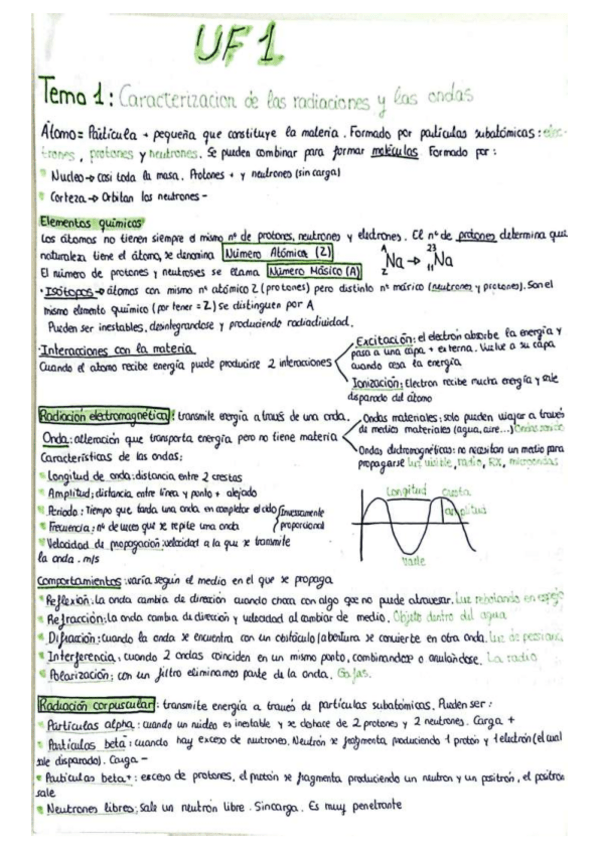 UF1
Tema 1: Caracterizacion de las radiaciones y las ondas
Átomo = Partícula + pequeña que constituye la materia. Formado por partículas subatómicas: elec-
trones, protones y neutrones. Se pueden combinar para formar moléculas. Formado por:
Nucleo → casi toda la masa. Protones + y neutrones (sin carga)
Corteza → Orbitan los neutrones -
Elementos químicos
Los átomos no tienen siempre el mismo nº de protones, neutrones y electrones. El nº de protones determina que
naturaleza tiene el átomo, se denomina Número Atómico (Z)
A Z Na → 23 11 Na
El número de protones y neutrones se llama Número Másico (A)
Isótopos → átomos con mismo nº atómico Z (protones) pero distinto nº másico (neutrones y protones). Son el
mismo elemento químico (por tener = Z) se distinguen por A
Pueden ser inestables, desintegrandose y produciendo radiactividad.
Interacciones con la materia
Cuando el átomo recibe energía puede producirse 2 interacciones
Excitación: el electrón absorbe la energía y
pasa a una capa + externa. Vuelve a su capa
cuando cesa la energía
Ionización: Electron recibe mucha energía y sale
disparado del átomo
Radiación electromagnética: transmite energía a través de una onda.
Onda: alteración que transporta energía pero no tiene materia
Ondas materiales: solo pueden viajar a través
de medios materiales (agua, aire...)
Ondas electromagnéticas: no necesitan un medio para
propagarse luz visible, radio, RX, microondas
Características de las ondas:
Longitud de onda: distancia entre 2 crestas
Amplitud: distancia entre línea y punto + alejado
Periodo: Tiempo que tarda una onda en completar el ciclo
Frecuencia: nº de veces que se repite una onda
inversamente
proporcional
Velocidad de propagación: velocidad a la que se transmite
la onda. m/s
Longitud cresta
amplitud
valle
Comportamientos: varía según el medio en el que se propaga
Reflexión: la onda cambia de dirección cuando choca con algo que no puede atravesar. Luz rebotando en espejo
Refracción: la onda cambia de dirección y velocidad al cambiar de medio. Objeto dentro del agua
Difracción: cuando la onda se encuentra con un obstáculo/abertura se convierte en otra onda. luz de persiana
Interferencia: cuando 2 ondas coinciden en un mismo punto, combinandose o anulandose. La radio
Polarización: con un filtro eliminamos parte de la onda. Gafas.
Radiación corpuscular: transmite energía a través de partículas subatómicas. Pueden ser:
Partículas alpha: cuando un núcleo es inestable y se deshace de 2 protones y 2 neutrones. Carga +
Partículas beta-: cuando hay exceso de neutrones. Neutrón se fragmenta produciendo 1 protón y 1 electrón (el cual
sale disparado). Carga -
Partículas beta+: exceso de protones, el protón se fragmenta produciendo un neutron y un positrón, el positrón
sale
Neutrones libres: sale un neutrón libre. Sin carga. Es muy penetrante